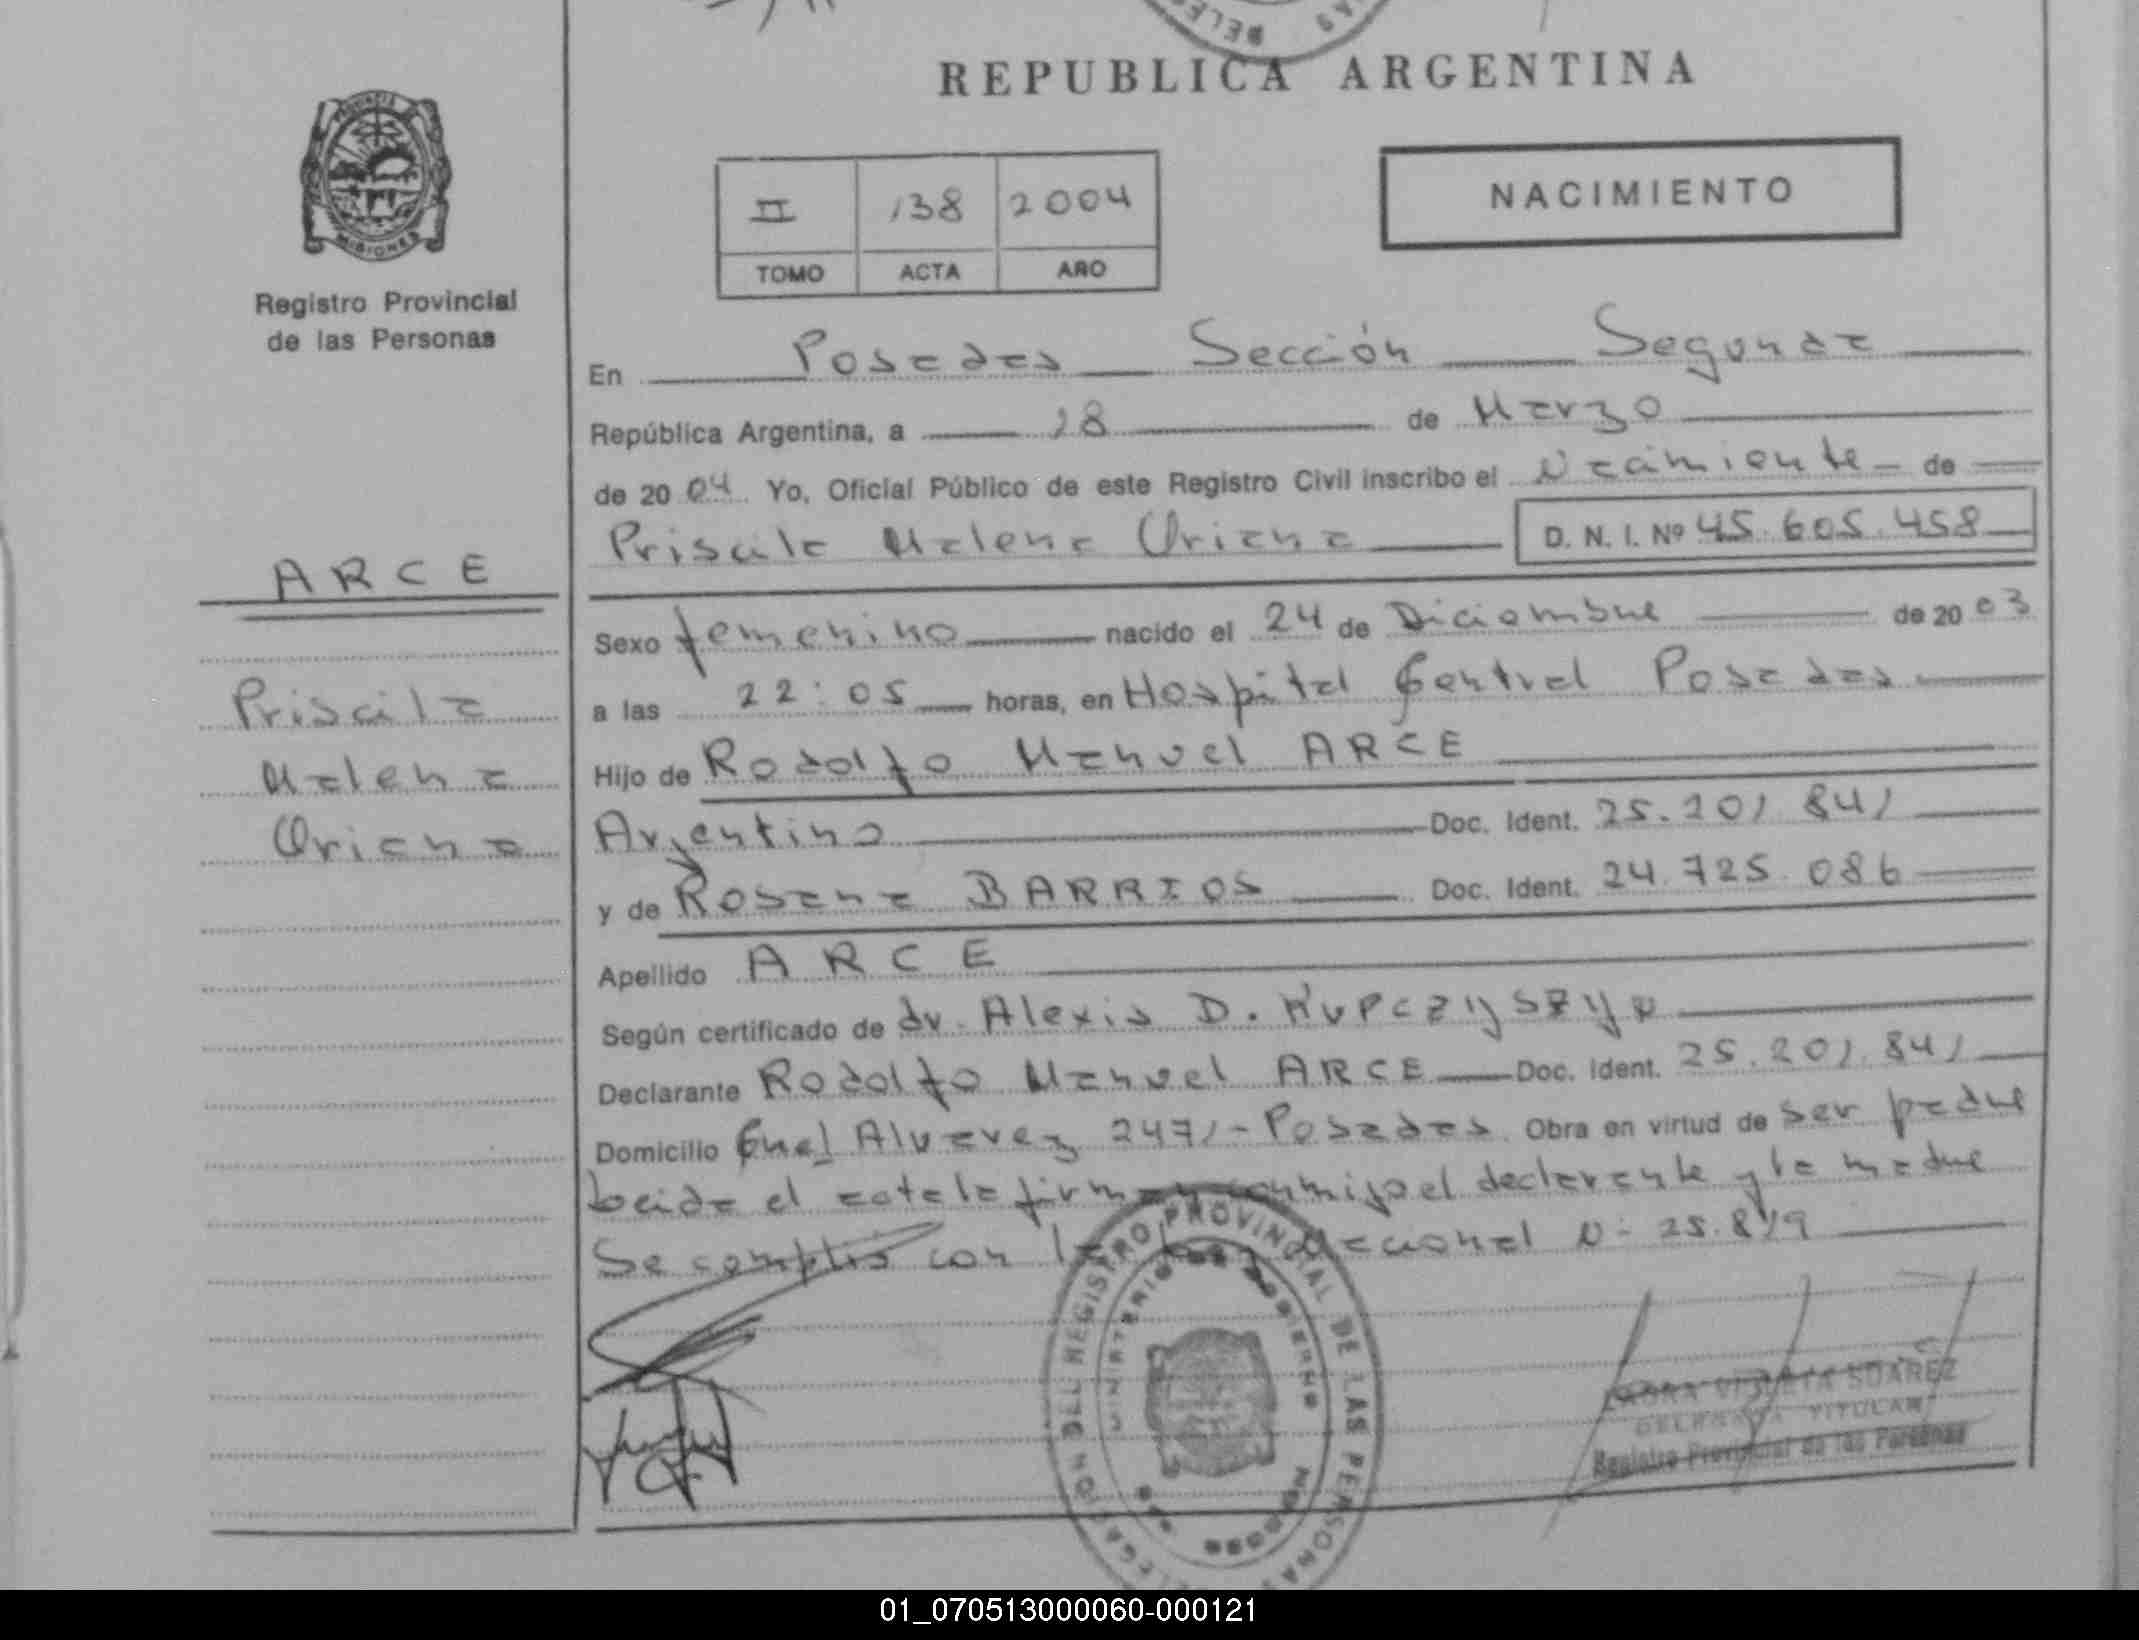 REPUBLICA ARGENTINA
NACIMIENTO
II 138 2004
TOMO ACTA AÑO
MISIONES
Registro Provincial
de las Personas
En Posadas Sección Segunda
República Argentina, a 18 de Marzo
de 2004 Yo, Oficial Público de este Registro Civil inscribo el de
Priscila Malena Oriana D. N. I. Nº 45.605.458
ARCE
Priscila
Malena
Oriana
Sexo femenino nacido el 24 de Diciembre de 2003
a las 22:05 horas, en Hospital Central Posadas
Hijo de Rodolfo Manuel ARCE
Argentino Doc. Ident. 25.201.841
y de Rosana BARRIOS Doc. Ident. 24.725.086
Apellido ARCE
Según certificado de dr. Alexis D. Kupczyszyn
Declarante Rodolfo Manuel ARCE Doc. Ident. 25.201.841
Domicilio Gnel Alvarez 2471 - Posadas Obra en virtud de ser padre
el acta la firman conmigo el declarante y la madre
Se cumplió con la Nacional N: 25.819
DELEGACION DEL REGISTRO PROVINCIAL DE LAS PERSONAS
MINISTERIO DE GOBIERNO
SUAREZ
TITULAR
Registro Provincial de las Personas
01_070513000060-000121